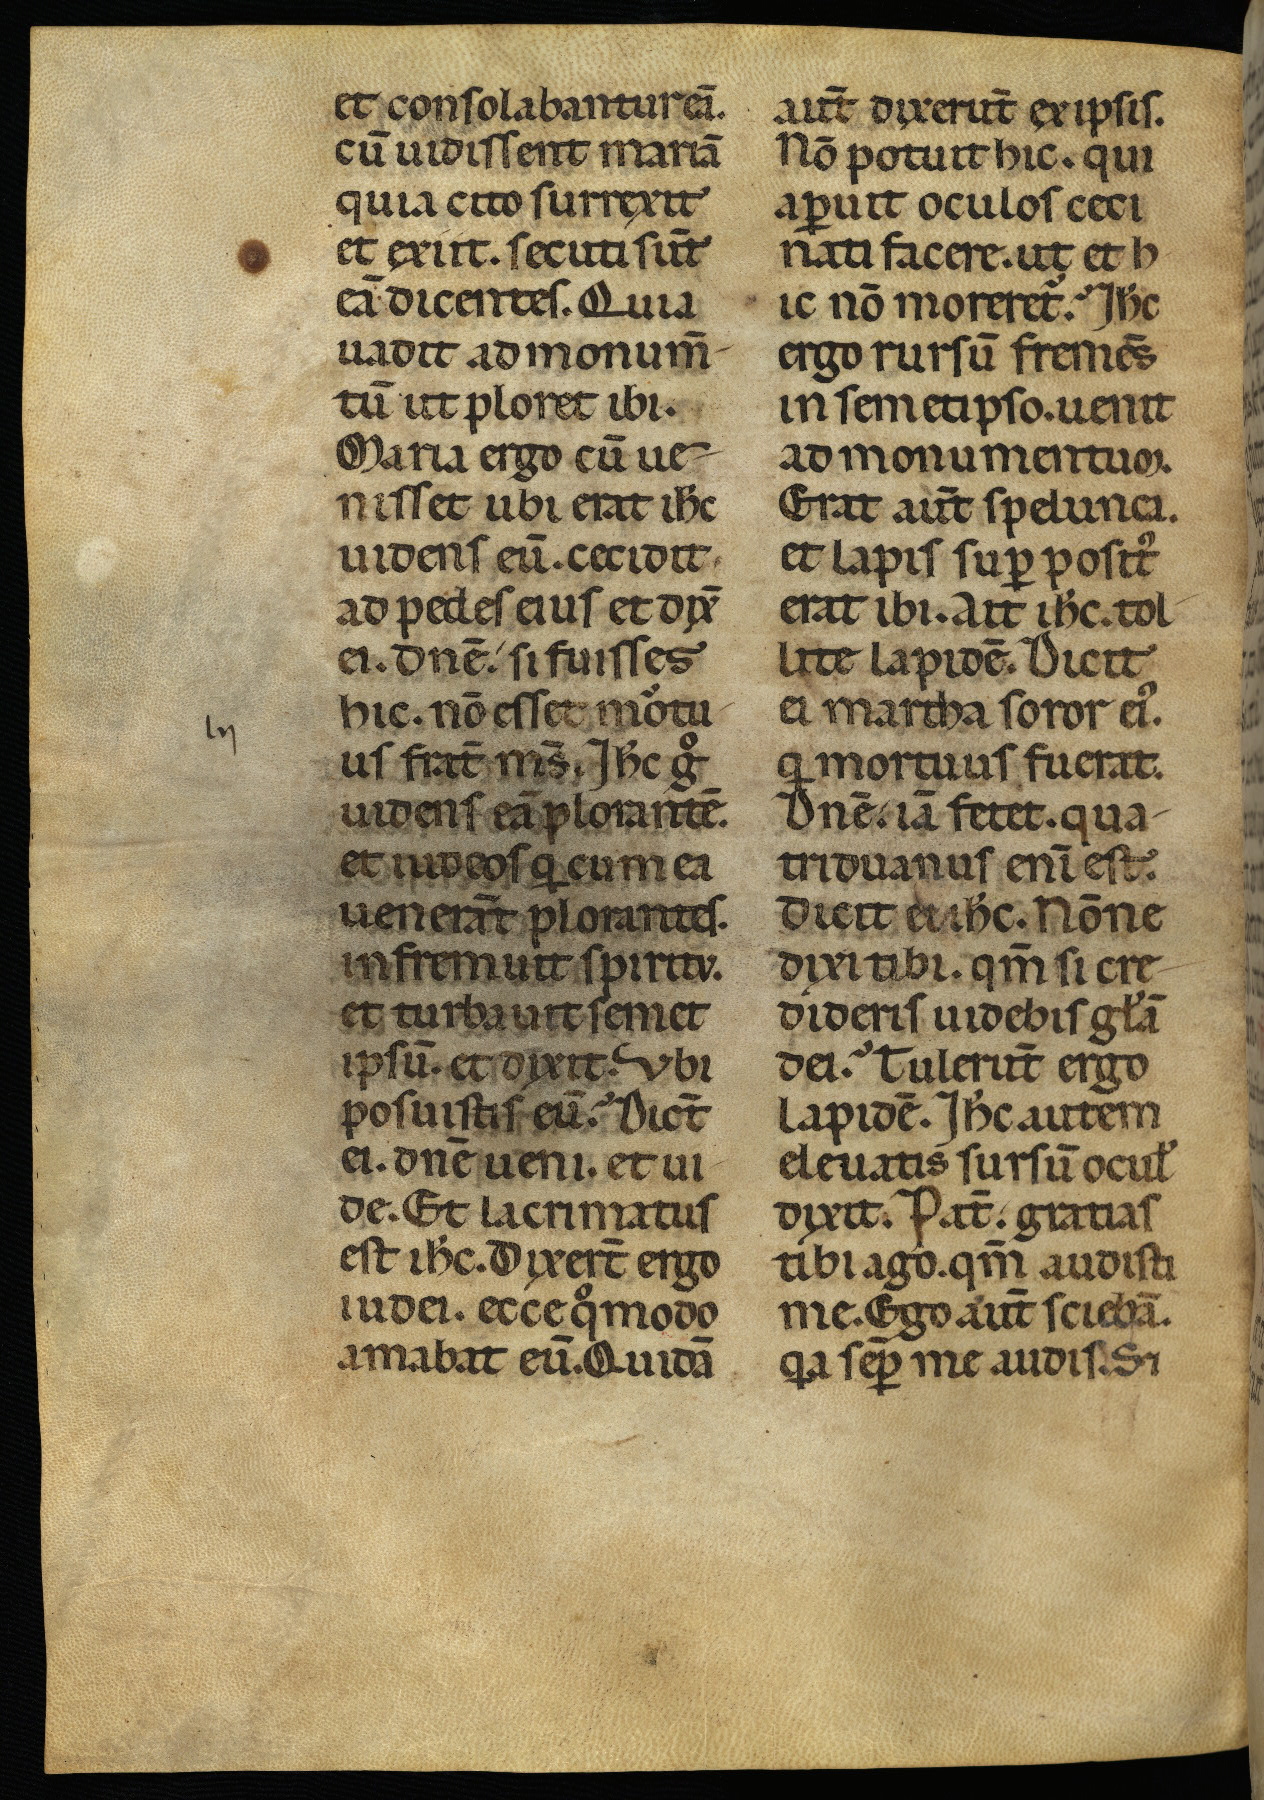 et consolabantur eā.
cū uidissent mariā
quia cito surrexit
et exiit. secuti sūt
eā dicentes. Quia
uadit ad monum̄-
tū ut ploret ibi.
Maria ergo cū ue-
nisset ubi erat ih̄c
uidens eū. cecidit
ad pedes eius et dix̄
ei. Dn̄e. si fuisses
hic. nō esset mo᷒rtu-
us frat̄ ms̄. Jh̄c gͦ
uidens eā plorantē.
et iudeos q cum ea
uenerāt plorantes.
infremuit spiritv.
et turbauit semet
ipsū. et dixit. Vbi
posuistis eū. Dict̄
ei. dn̄e ueni. et ui-
de. Et lacrimatus
est ih̄c. Dixert̄ ergo
iudei. ecce qͦmodo
amabat eū. Quidā
aut̄ dixerūt ex ipsis.
Nō potuit hic. qui
aꝑuit oculos ceci
nati facere. ut et h-
ic nō moreret᷒. Jh̄c
ergo rursū fremēs
in semetipso. uenit
ad monumentuꝫ.
Erat aut̄ spelunca.
et lapis suꝑ posit᷒
erat ibi. Ait ih̄c. tol-
lite lapidē. Dicit
ei martha soror ei᷒.
q mortuus fuerat.
Dn̄e. iā fetet. qua-
triduanus enī est.
Dicit ei ih̄c. Nōne
dixi tibi. qm̄ si cre-
dideris uidebis gl̄ā
dei. Tulerūt ergo
lapidē. Jh̄c autem
eleuatis sursū ocul᷒
dixit. Pat̄. gratias
tibi ago. qm̄ audisti
me. Ego aut̄ sciebā.
qa seꝑ̄ me audis. Si